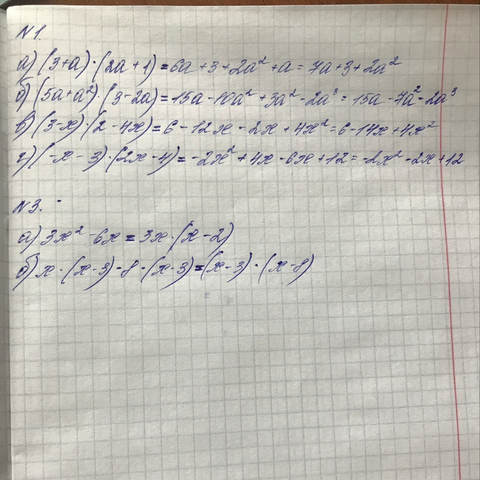 N1.
а) (3+a)·(2a+1)=6a+3+2a²+a=7a+3+2a²
б) (5a+a²)·(3-2a)=15a-10a²+3a²-2a³=15a-7a²-2a³
в) (3-x)·(2-4x)=6-12x-2x+4x²=6-14x+4x²
г) (-x-3)·(2x-4)=-2x²+4x-6x+12=-2x²-2x+12
N3.
а) 3x²-6x=3x·(x-2)
б) x·(x-3)-8·(x-3)=(x-3)·(x-8)